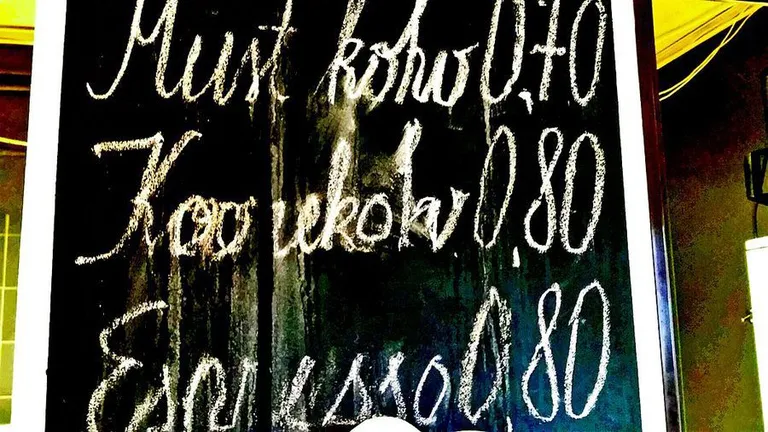 Must kohv 0,70
Koorekohv 0,80
Espresso 0,80